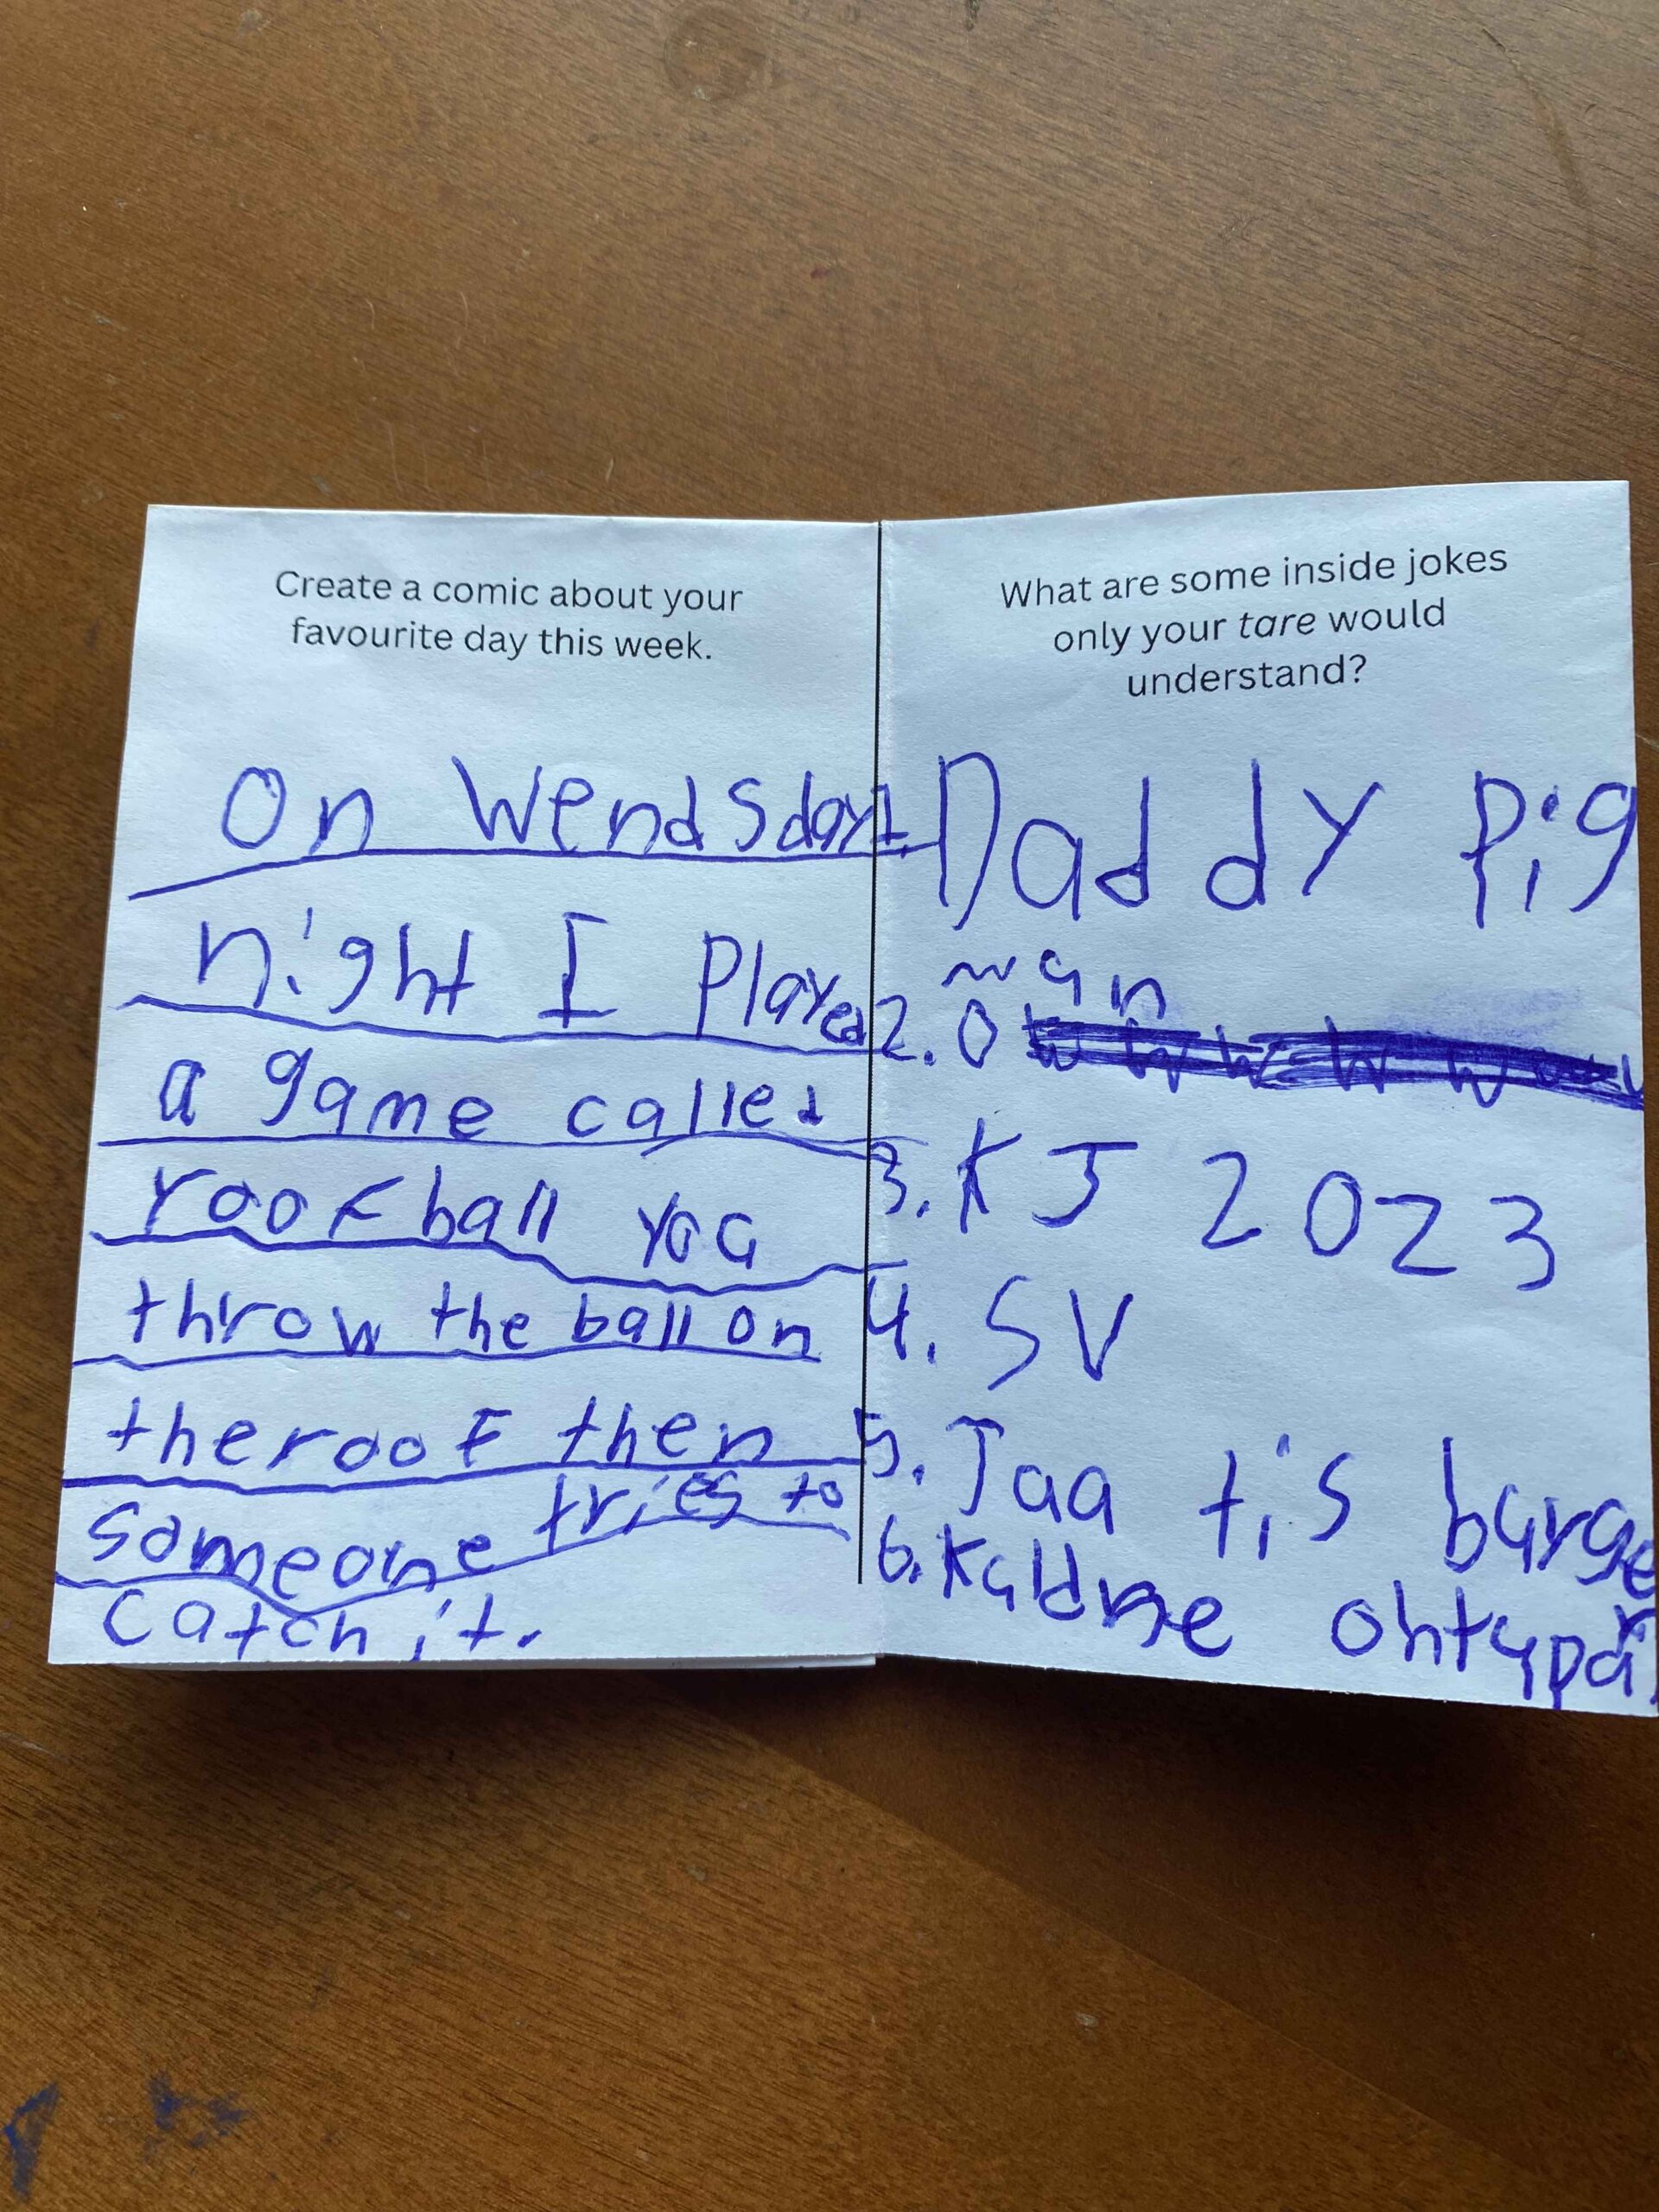 Create a comic about your
favourite day this week.
On Wendsday
night I played
a game called
roof ball you
throw the ball on
the roof then
someone tries to
catch it.
What are some inside jokes
only your tare would
understand?
1. Daddy Pig
2. O
3. KJ 2023
4. SV
5. Jaa tis burge
6.